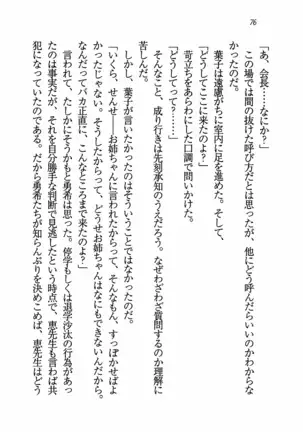 76
「あ、会長……なにか？」
この場では間の抜けた呼び方だとは思ったが、他にどう呼んだらいいのかわからな
かったのだ。
葉子は遠慮がちに室内に足を進めた。そして、
「どうしてここに来たのよ？」
苛立ちをあらわにした口調で問いかけた。
「どうしてって……」
そんなこと、成り行きは先刻承知のうえだろう。なぜわざわざ質問するのか理解に
苦しんだ。
だが、葉子が言いたかったのはそういうことではなかったのだ。
「いくら、せんせ……お姉ちゃんに言われたからって、そんなもん、すっぽかせばよ
かったじゃない。そうしたからって、どうせお姉ちゃんはなにもできないんだから。
なんだってバカ正直に、こんなところまで来たのよ！」
言われて、たしかにそうかもと勇希は思った。停学もしくは退学沙汰の行為があっ
たのは事実だが、それを自分勝手な判断で見逃したという時点で、恵先生も言わば共
犯になっていたのだ。だから勇希たちが知らんぷりを決めこめば、恵先生はどう